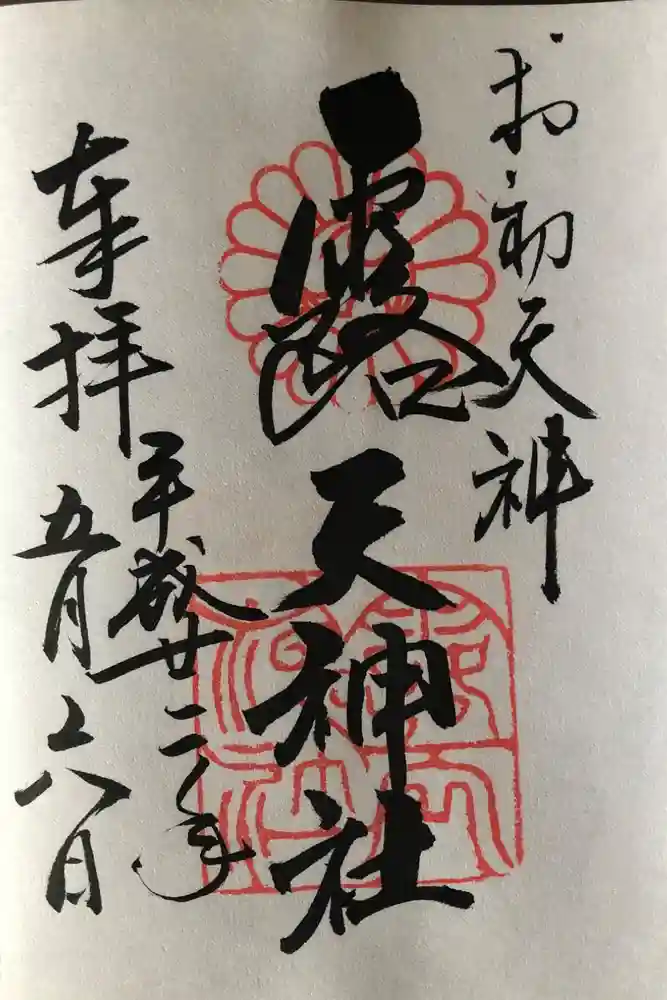 お初天神
露天神社
奉拝
平成廿二年
五月六日